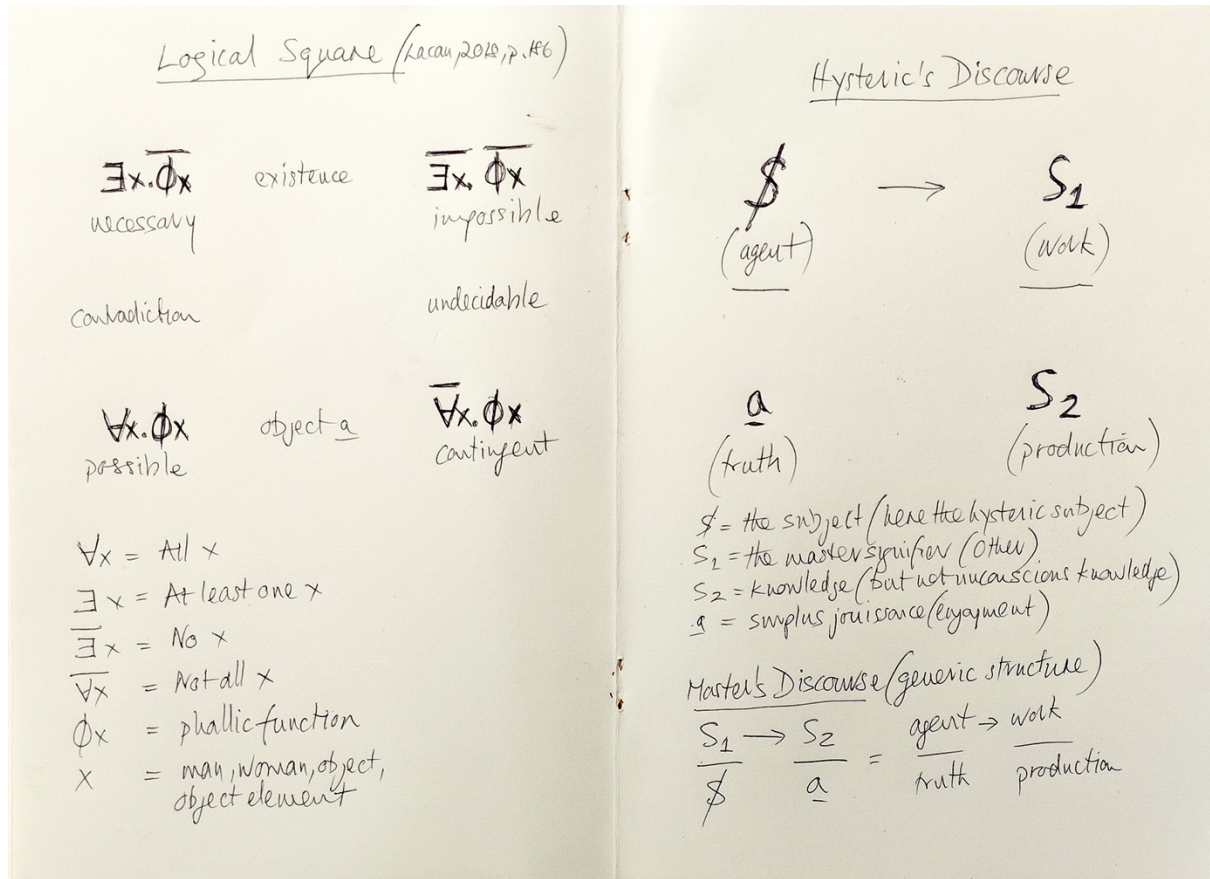 Logical Square (Lacan, 2018, p. 186)
∃x.Φ̅x̅ existence ∃̅x̅. Φ̅x̅
necessary impossible
contradiction undecidable
∀x.Φx object a ∀̅x.Φx
possible contingent
∀x = All x
∃x = At least one x
∃̅x̅ = No x
∀̅x̅ = Not all x
Φx = phallic function
x = man, woman, object,
object element
Hysteric's Discourse
$ → S₁
(agent) (work)
a S₂
(truth) (production)
$ = the subject (here the hysteric subject)
S₁ = the master signifier (Other)
S₂ = knowledge (but not unconscious knowledge)
a = surplus jouissance (enjoyment)
Master's Discourse (generic structure)
S₁ → S₂ = agent → work
$ a truth production